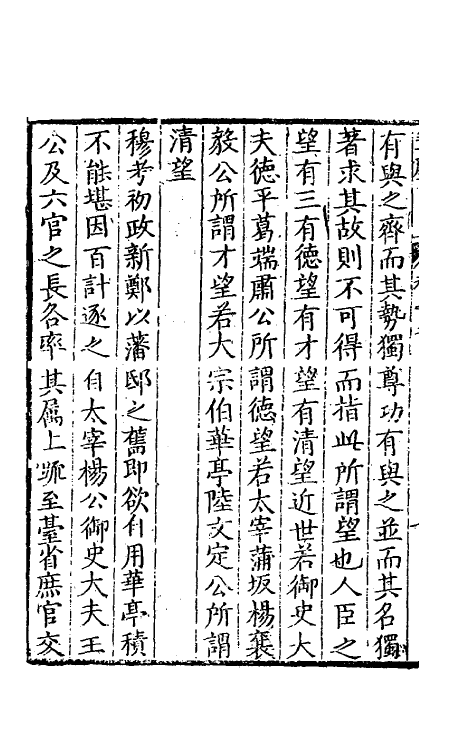 有與之齊而其勢獨尊功有與之並而其名獨
著求其故則不可得而指此所謂望也人臣之
望有三有徳望有才望有清望近世若御史大
夫徳平葛端肅公所謂徳望若太宰蒲坂楊襄
毅公所謂才望若大宗伯華亭陸文定公所謂
清望
穆考初政新鄭以藩邸之舊即欲自用華亭積
不能堪因百計逐之自太宰楊公御史大夫王
公及六官之長各率其属上䟽至臺省庶官交